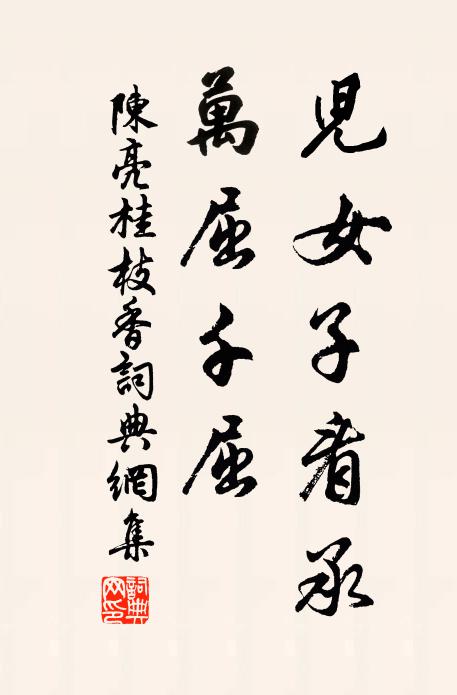 児女子者承
萬屈千屈
陳亮桂枝香詞典網集
詞典網印